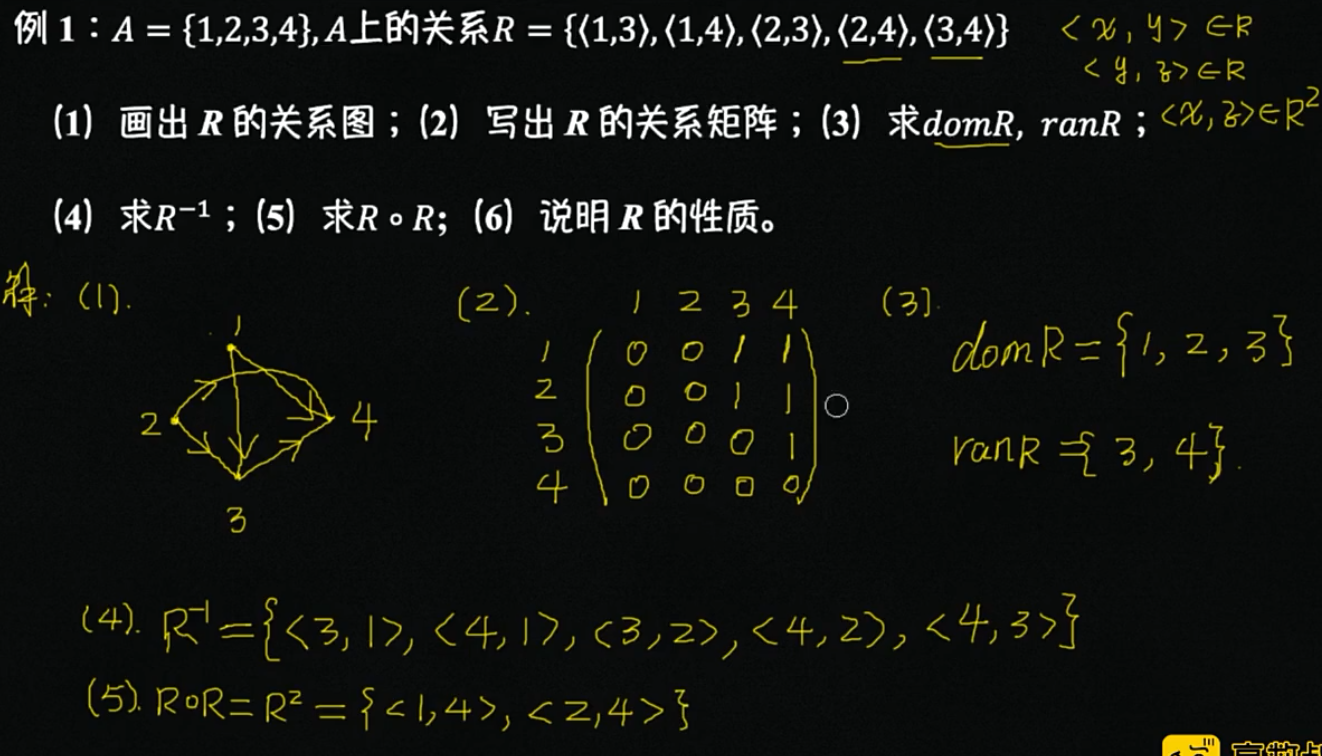 例 1：A = {1,2,3,4}, A上的关系R = {⟨1,3⟩,⟨1,4⟩,⟨2,3⟩,⟨2,4⟩,⟨3,4⟩}
<x, y> ∈R
<y, z>∈R
(1) 画出 R 的关系图；(2) 写出 R 的关系矩阵；(3) 求domR, ranR；
<x, z>∈R²
(4) 求R⁻¹；(5) 求R∘R; (6) 说明 R 的性质。
解：(1).
1
2
4
3
(2).
1 2 3 4
1 0 0 1 1
2 0 0 1 1
3 0 0 0 1
4 0 0 0 0
(3).
domR={1, 2, 3}
ranR={3, 4}.
(4). R⁻¹={<3, 1>, <4, 1>, <3, 2>, <4, 2>, <4, 3>}
(5). R∘R=R²={<1,4>, <2,4>}